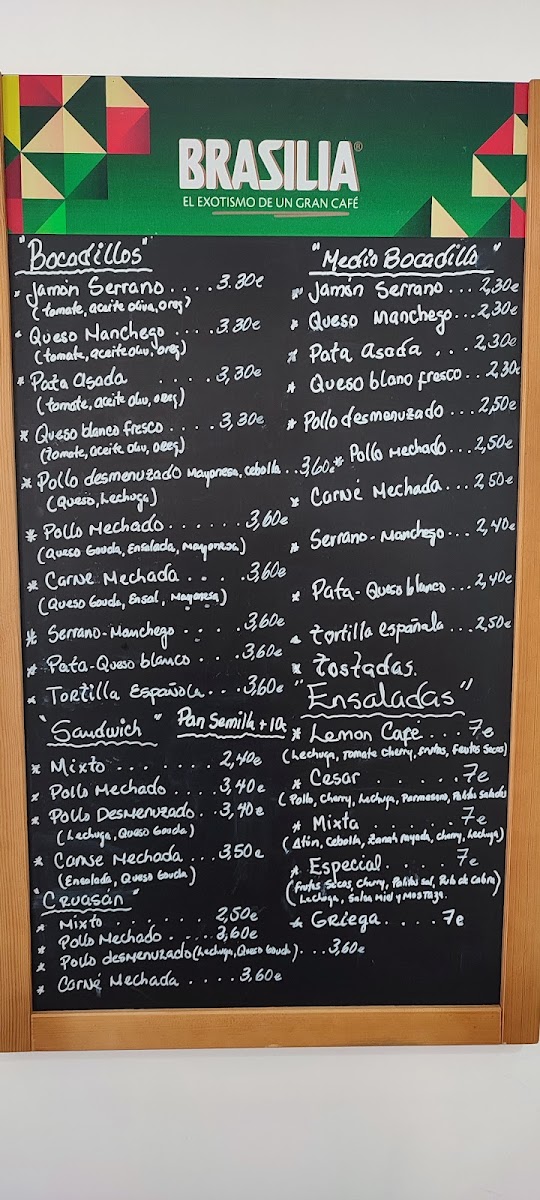 BRASILIA®
EL EXOTISMO DE UN GRAN CAFÉ
"Bocadillos"
* Jamón Serrano . . . . 3.30€
(tomate, aceite oliva, oreg)
* Queso Manchego . . . . 3.30€
(tomate, aceite oliv, oreg)
* Pata Asada . . . . 3,30€
(tomate, aceite oliv, oreg)
* Queso blanco fresco . . . 3,30€
(Tomate, aceite oliv, oreg)
* Pollo desmenuzado Mayonesa, cebolla . . . 3,60€
(Queso, Lechuga)
* Pollo Mechado . . . . . . 3,60€
(Queso Gouda, Ensalada, Mayonesa)
* Carne Mechada . . . . 3,60€
(Queso Gouda, Ensal, Mayonesa)
* Serrano-Manchego . . . . 3.60€
* Pata-Queso blanco . . . 3,60€
* Tortilla Española . . . 3,60€
"Sandwich" Pan Semilla + 10c
* Mixto . . . . . . . 2,40€
* Pollo Mechado . . . . 3,40€
* Pollo Desmenuzado . . 3,40€
(Lechuga, Queso Gouda)
* Carne Mechada . . . 3.50€
(Ensalada, Queso Gouda)
"Cruasán"
* Mixto . . . . . . . . 2,50€
* Pollo Mechado . . . . 3,60€
* Pollo desmenuzado (Lechuga, Queso Gouda) . . . 3,60€
* Carne Mechada . . . . 3,60€
"Medio Bocadillo"
* Jamón Serrano . . . 2,30€
* Queso Manchego . . . 2,30€
* Pata Asada . . . 2,30€
* Queso blanco fresco . . . 2,30€
* Pollo desmenuzado . . . 2,50€
* Pollo Mechado . . . 2,50€
* Carne Mechada . . . 2,50€
* Serrano-Manchego . . . 2,40€
* Pata-Queso blanco . . . 2,40€
* Tortilla española . . . 2,50€
* Tostadas.
"Ensaladas"
* Lemon Café . . . . 7€
(Lechuga, Tomate Cherry, frutas, Frutos Secos)
* Cesar . . . . . . 7€
(Pollo, Cherry, Lechuga, Parmesano, Palitos Salados)
* Mixta . . . . . 7€
(Atún, Cebolla, Zanah rayada, cherry, Lechuga)
* Especial . . . . . 7€
(Frutos Secos, Cherry, Palitos sal, Rulo de Cabra)
Lechuga, Salsa Miel y Mostaza.
* Griega . . . . 7€